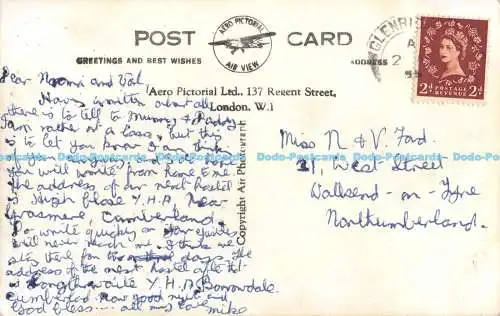 POST CARD
AERO PICTORIAL
AIR VIEW
GREETINGS AND BEST WISHES
ADDRESS
GLENRI
A
2
POSTAGE
REVENUE
2d 2d
Aero Pictorial Ltd., 137 Regent Street,
London. W.1
Copyright Air Photograph
Dear Naomi and Val
Have written about all
there is to tell to Mummy & Daddy
I am rather at a loss, but this
is to let you know I am thinking
of you
you will write from home
the address of our next hostel
is High Close Y.H.A. Near
Grasmere, Cumberland.
Do write quickly or your epistles
will never reach me. I think we
stay there for days. The
address of the next hostel after tht
is Longthwaite Y.H.A. Borrowdale
Cumberland. Now good night and
God bless... all my love Mike
Miss N & V. Ford.
31, West Street
Wallsend-on-Tyne
Northumberland.
Dodo-Postcards Dodo-Postcards Dodo-Postcards